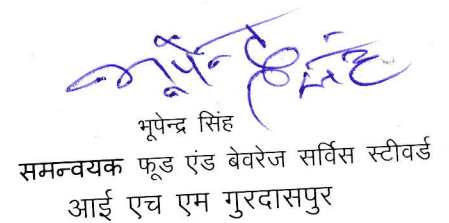 भूपेन्द्र सिंह
भूपेन्द्र सिंह
समन्वयक फूड एंड बेवरेज सर्विस स्टीवर्ड
आई एच एम गुरदासपुर